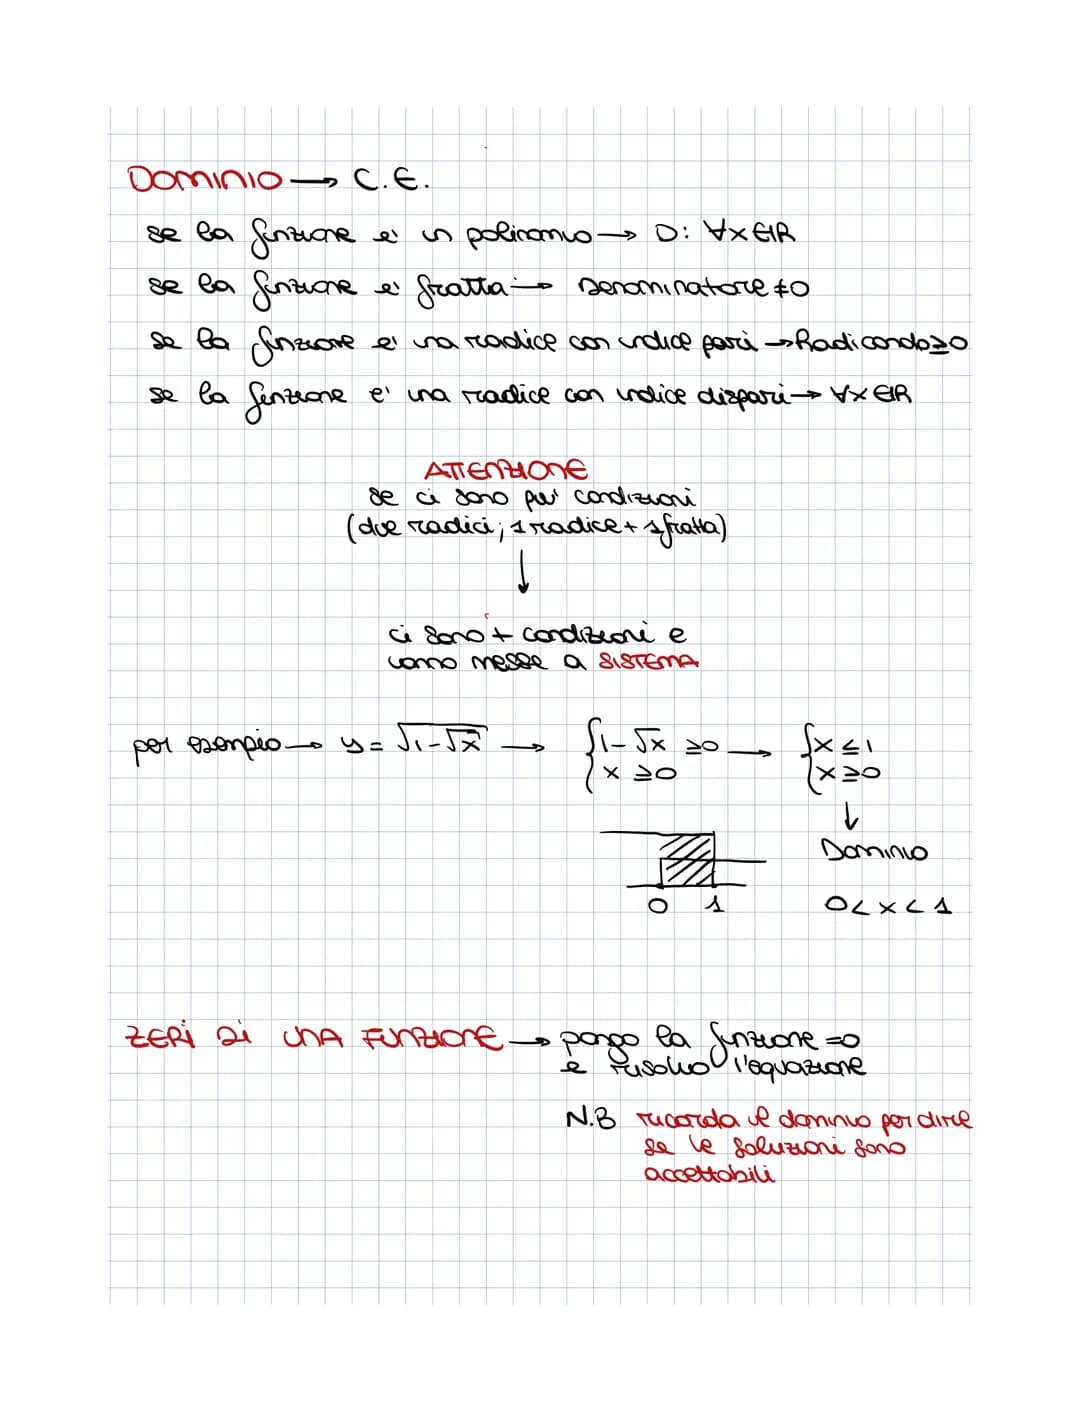 DOMINIO → C.E.
se la funzione e' un polinomio → D: ∀x∈ℝ
se la funzione e' fratta → Denominatore ≠0
se la funzione e' una radice con indice pari → Radicando≥0
se la funzione e' una radice con indice dispari → ∀x∈ℝ
ATTENZIONE
se ci sono piu' condizioni
(due radici; 1 radice + 1 fratta)
↓
ci sono + condizioni e
vanno messe a SISTEMA
per esempio → y = √(1-√x) → { 1-√x ≥0 → { x ≤1
x ≥0 x ≥0
↓
Dominio
0 1 0<x<1
ZERI DI UNA FUNZIONE → pongo la funzione =0
e risolvo l'equazione
N.B ricorda il dominio per dire
se le soluzioni sono
accettabili